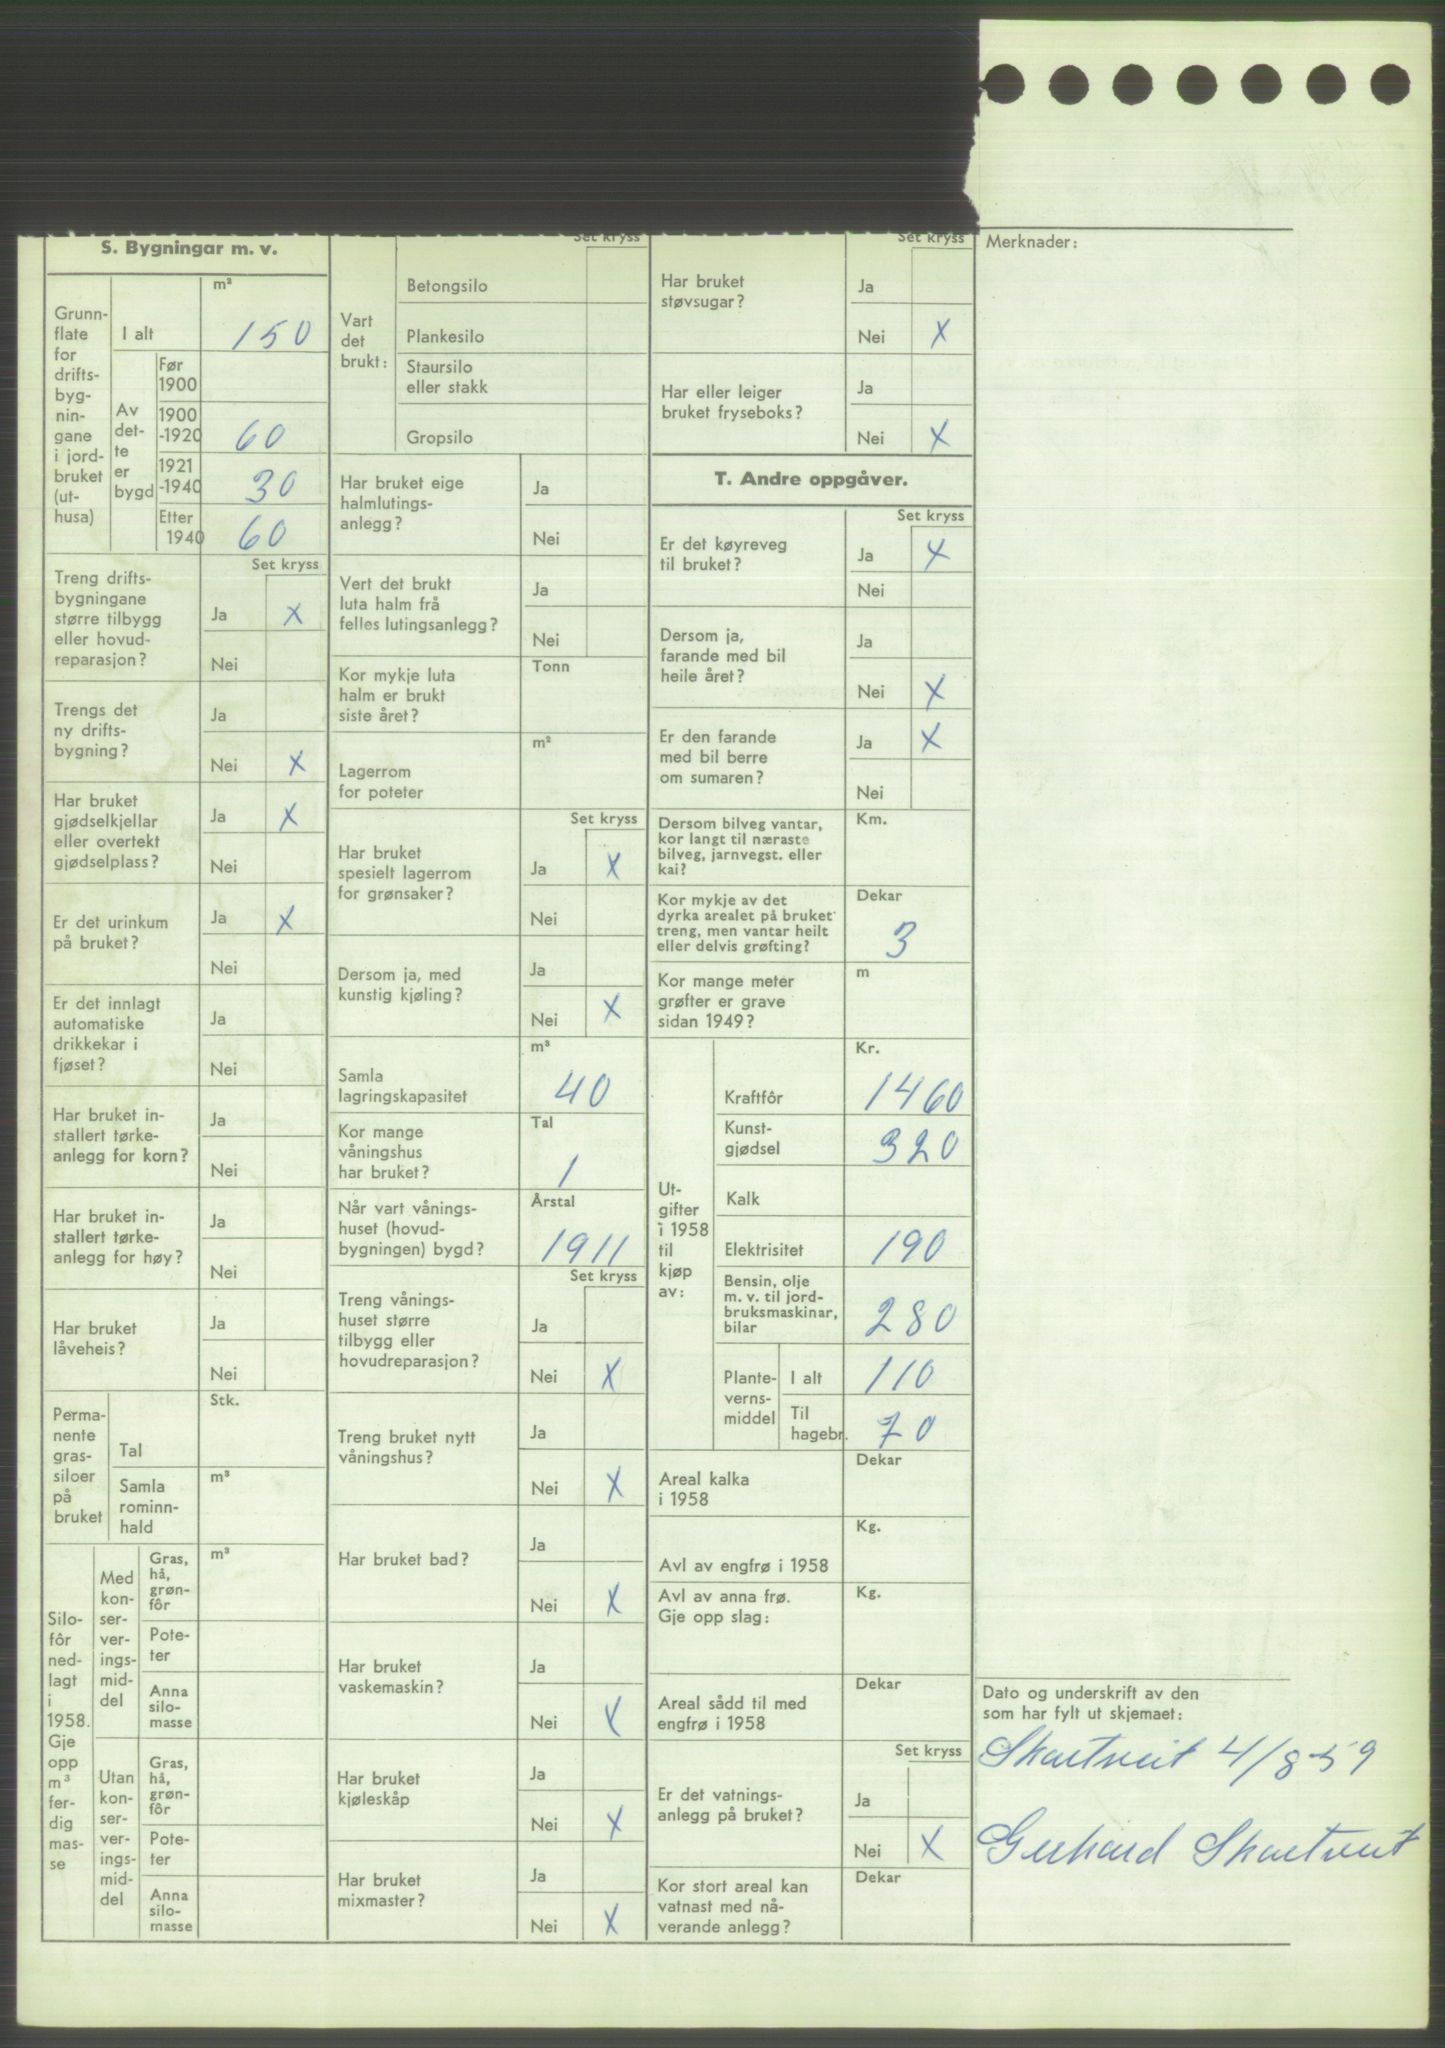 S. Bygningar m. v.
Grunn-
flate
for
drifts-
byg-
nin-
gane
i jord-
bruket
(ut-
husa)
m²
I alt 150
Av
det-
te
er
bygd
Før
1900
1900
-1920 60
1921
-1940 30
Etter
1940 60
Set kryss
Treng drifts-
bygningane
større tilbygg
eller hovud-
reparasjon?
Ja X
Nei
Trengs det
ny drifts-
bygning?
Ja
Nei X
Har bruket
gjødselkjellar
eller overtekt
gjødselplass?
Ja X
Nei
Er det urinkum
på bruket?
Ja X
Nei
Er det innlagt
automatiske
drikkekar i
fjøset?
Ja
Nei
Har bruket in-
stallert tørke-
anlegg for korn?
Ja
Nei
Har bruket in-
stallert tørke-
anlegg for høy?
Ja
Nei
Har bruket
låveheis?
Ja
Nei
Perma-
nente
gras-
siloer
på
bruket
Stk.
Tal
m³
Samla
rominn-
hald
Silo-
fôr
ned-
lagt
i
1958.
Gje
opp
m³
fer-
dig
mas-
se
Med
kon-
ser-
ver-
ings-
mid-
del
m³
Gras,
hå,
grøn-
fôr
Pote-
ter
Anna
silo-
masse
Utan
kon-
ser-
ver-
ings-
mid-
del
Gras,
hå,
grøn-
fôr
Pote-
ter
Anna
silo-
masse
Vart
det
brukt:
Set kryss
Betongsilo
Plankesilo
Staursilo
eller stakk
Gropsilo
Har bruket eige
halmlutings-
anlegg?
Ja
Nei
Vert det brukt
luta halm frå
felles lutingsanlegg?
Ja
Nei
Kor mykje luta
halm er brukt
siste året?
Tonn
Lagerrom
for poteter
m²
Set kryss
Har bruket
spesielt lagerrom
for grønsaker?
Ja X
Nei
Dersom ja, med
kunstig kjøling?
Ja
Nei X
Samla
lagringskapasitet
m³
40
Kor mange
våningshus
har bruket?
Tal
1
Når vart vånings-
huset (hovud-
bygningen) bygd?
Årstal
1911
Set kryss
Treng vånings-
huset større
tilbygg eller
hovudreparasjon?
Ja
Nei X
Treng bruket nytt
våningshus?
Ja
Nei X
Har bruket bad?
Ja
Nei X
Har bruket
vaskemaskin?
Ja
Nei X
Har bruket
kjøleskåp
Ja
Nei X
Har bruket
mixmaster?
Ja
Nei X
Set kryss
Har bruket
støvsugar?
Ja
Nei X
Har eller leiger
bruket fryseboks?
Ja
Nei X
T. Andre oppgåver.
Set kryss
Er det køyreveg
til bruket?
Ja X
Nei
Dersom ja,
farande med bil
heile året?
Ja
Nei X
Er den farande
med bil berre
om sumaren?
Ja X
Nei
Dersom bilveg vantar,
kor langt til næraste
bilveg, jarnvegst. eller
kai?
Km.
Kor mykje av det
dyrka arealet på bruket
treng, men vantar heilt
eller delvis grøfting?
Dekar
3
Kor mange meter
grøfter er grave
sidan 1949?
m
Ut-
gifter
i 1958
til
kjøp
av:
Kr.
Kraftfôr 1460
Kunst-
gjødsel 320
Kalk
Elektrisitet 190
Bensin, olje
m. v. til jord-
bruksmaskinar,
bilar 280
Plante-
verns-
middel
I alt 110
Til
hagebr. 70
Areal kalka
i 1958
Dekar
Avl av engfrø i 1958
Kg.
Avl av anna frø.
Gje opp slag:
Kg.
Areal sådd til med
engfrø i 1958
Dekar
Set kryss
Er det vatnings-
anlegg på bruket?
Ja
Nei X
Kor stort areal kan
vatnast med nå-
verande anlegg?
Dekar
Merknader:
Dato og underskrift av den
som har fylt ut skjemaet:
Skartveit 4/8-59
Gerhard Skartveit